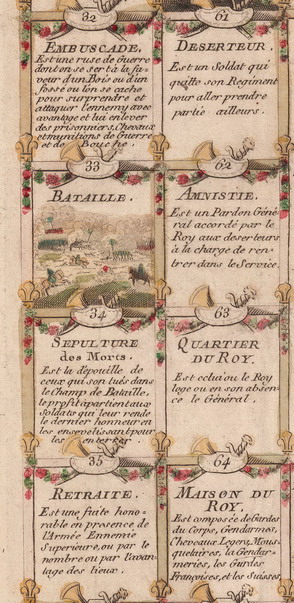 32
EMBUSCADE.
Est une ruse de Guerre
dont on se sert à la fa-
veur d'un Bois ou d'un
fossé ou lon se cache
pour surprendre et
attaquer l'ennemy avec
avantage et lui enlever
des prisonniers, Chevaux
et munitions de Guerre
et de Bouche.
33
BATAILLE.
34
SEPULTURE
des Morts.
Est la dépouille de
ceux qui son tués dans
le Champ de Bataille,
le profit apartient aux
Soldats qui leur rende
le dernier honneur en
les ensevelissant pour
les enterrer.
35
RETRAITE.
Est une fuite hono-
rable en presence de
l'Armée Ennemie
Superieure, ou par le
nombre ou par l'avan-
tage des lieux.
61
DESERTEUR.
Est un Soldat qui
quitte son Regiment
pour aller prendre
partie ailleurs.
62
AMNISTIE.
Est un Pardon Géné-
ral accordé par le
Roy aux deserteurs
à la charge de ren-
trer dans le Service.
63
QUARTIER
DU ROY.
Est celui ou le Roy
loge ou en son absen-
ce le Général.
64
MAISON DU
ROY.
Est composée de Gardes
du Corps, Gendarmes,
Cheveaux Legers, Mous-
quetaires, la Gendar-
meries, les Gardes
Françoises, et les Suisses